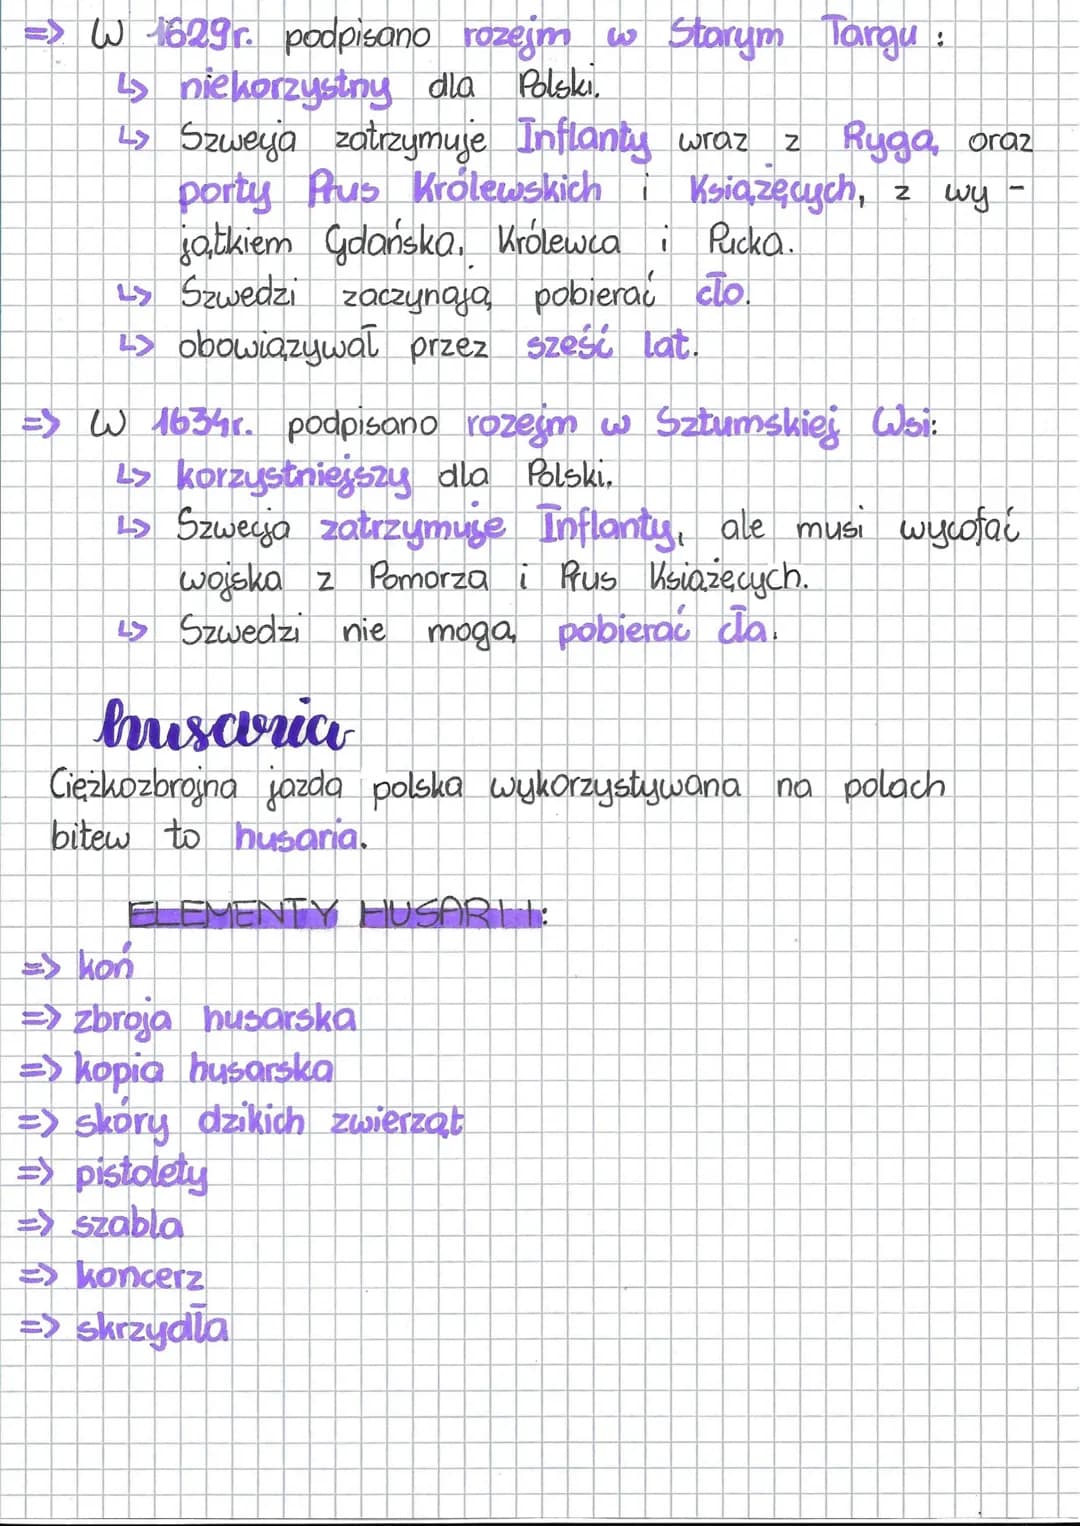 => W 1629r. podpisano rozejm w Starym Targu:
↳ niekorzystny dla Polski.
↳ Szwecja zatrzymuje Inflanty wraz z Rygą oraz
porty Prus Królewskich i Książęcych, z wy-
jątkiem Gdańska, Królewca i Pucka.
↳ Szwedzi zaczynają pobierać cło.
↳ obowiązywał przez sześć lat.
=> W 1634r. podpisano rozejm w Sztumskiej Wsi:
↳ korzystniejszy dla Polski.
↳ Szwecja zatrzymuje Inflanty, ale musi wycofać
wojska z Pomorza i Prus Książęcych.
↳ Szwedzi nie mogą pobierać cła.
husaria
Ciężkozbrojna jazda polska wykorzystywana na polach
bitew to husaria.
ELEMENTY HUSARII:
=> koń
=> zbroja husarska
=> kopia husarska
=> skóry dzikich zwierząt
=> pistolety
=> szabla
=> koncerz
=> skrzydła